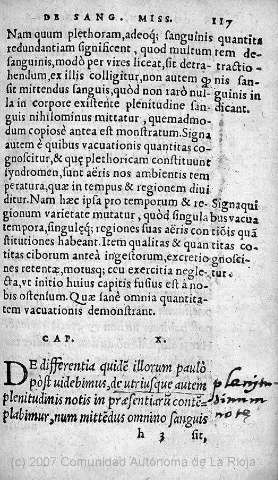 DE SANG. MISS. 117
Nam quum plethoram, adeoq; sanguinis
redundantiam significent, quod multum
sanguinis, modò per vires liceat, sit detra-
hendum, ex illis colligitur, non autem q
sit mittendus sanguis, quòd non rarò nul-
la in corpore existente plenitudine san-
guis nihilominus mittatur, quemadmo-
dum copiosè antea est monstratum. Signa
autem è quibus vacuationis quantitas co-
gnoscitur, & quę plethoricam constituunt
syndromen, sunt aëris nos ambientis tem
peratura, quæ in tempus & regionem divi
ditur. Nam hæc ipsa pro temporum & re-
gionum varietate mutatur, quòd singula
tempora, singulęq; regiones suas aëris con
stitutiones habeant. Item qualitas & quan
titas ciborum anteà ingestorum, excretio
nes retentæ, motusq; ceu exercitia negle-
cta, vt initio huius capitis fusius est à no-
bis ostensum. Quæ sanè omnia quantita-
tem vacuationis demonstrant.
quantita
tem de-
tractio-
nis san-
guinis in
dicant.
Signa qui
bus vacua
tiõis quã
titas co-
gnosci-
tur.
CAP. X.
DE differentia quidẽ illorum paulò
pòst videbimus, de utriusque autem
plenitudinis notis in præsentiarũ contẽ-
plabimur, num mittẽdus omnino sanguis
h 3 sit,
notę
(c) 2007 Comunidad Autónoma de La Rioja